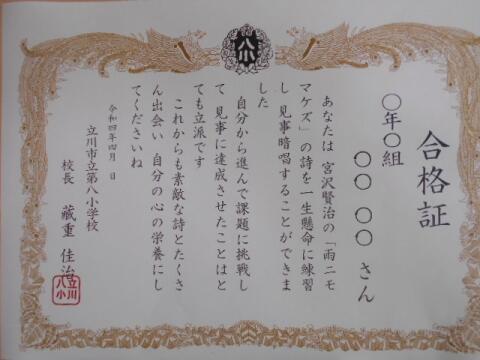 合格証
〇年〇組
〇〇 〇〇 さん
あなたは 宮沢賢治の「雨ニモ
マケズ」の詩を一生懸命に練習
し 見事暗唱することができま
した
自分から進んで課題に挑戦し
て 見事に達成させたことはと
ても立派です
これからも素敵な詩とたくさ
ん出会い 自分の心の栄養にし
てくださいね
令和四年四月 日
立川市立第八小学校
校長 蔵重 佳治
立川
八小